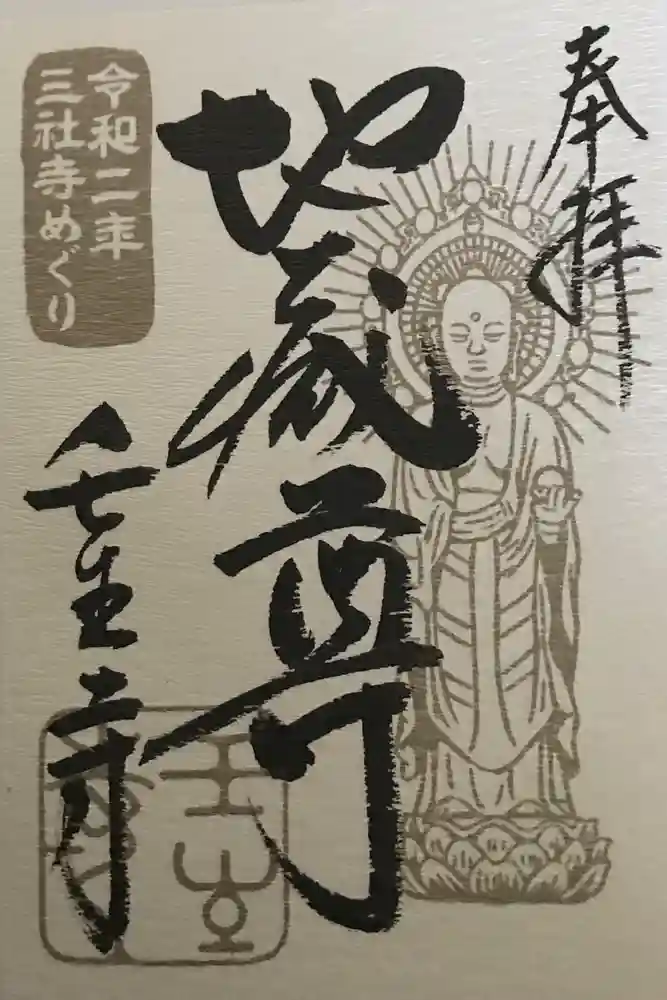 奉拝
地蔵尊
令和二年
三社寺めぐり
壬生寺